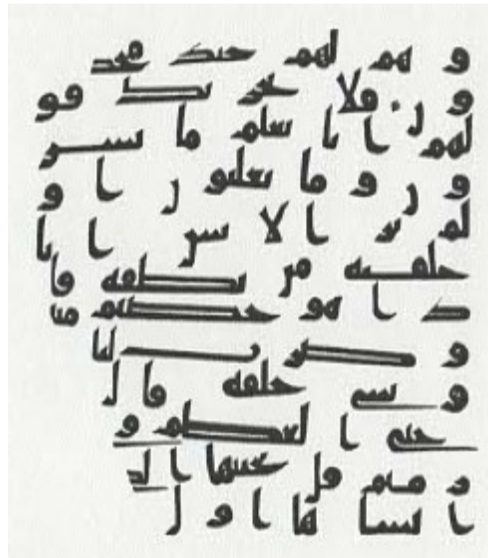 و هم لهم جند محضر
و ن فلا يحزنك قو
لهم ا نا نعلم ما يسر
و ن و ما يعلنو ن ا و
لم ير ا لا نسن ا نا
خلقنه من نطفه فا
ذ ا هو خصيم مبين
و ضرب لنا
و نسي خلقه قا ل
يحي ا لعظم و
رميم قل يحييها ا لذ
ا نشا ها ا و ل